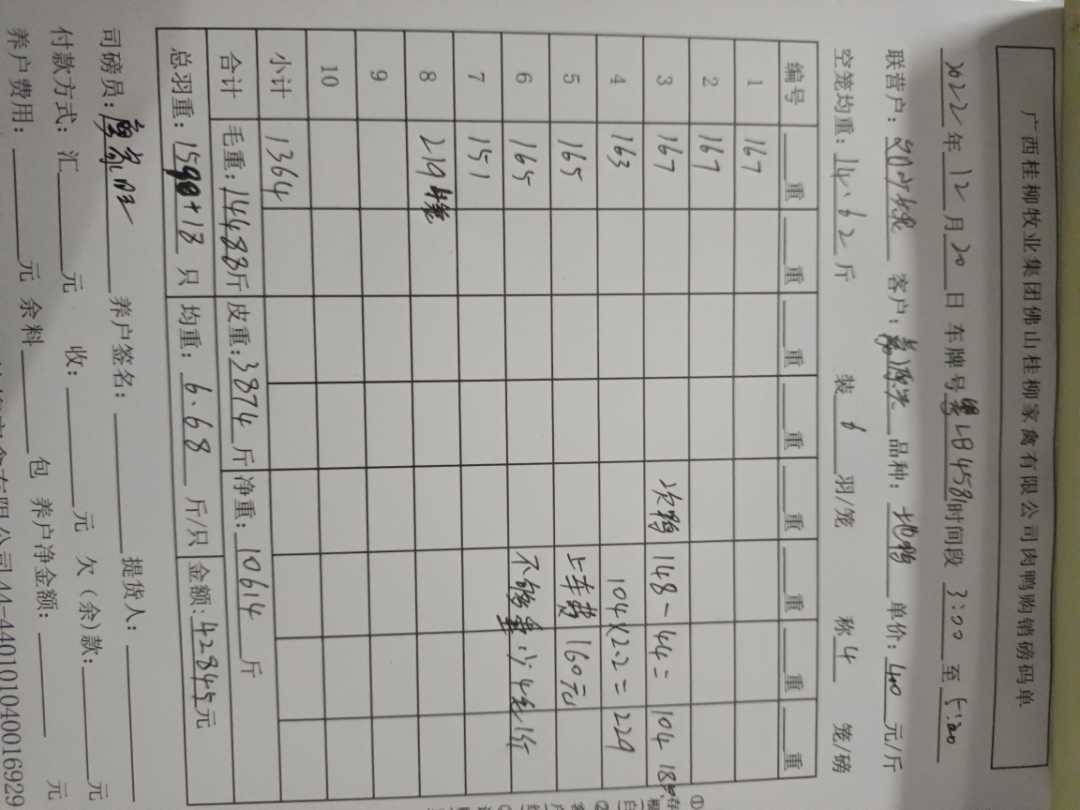 广西桂柳牧业集团佛山桂柳家禽有限公司肉鸭购销磅码单
2022年12月20日 车牌号 时间段 3:00 至 5:20
联营户: 客户: 品种: 单价:4.0 元/斤
空笼均重:14.62斤 装6羽/笼 称4笼/磅
编号 重 重 重 重 重 重 重 重
1 167
2 167
3 167 次鸭 148-44= 104 18只
4 163 104×2.2=229
5 165 上车费 160元
6 165 不够重 少4毛1斤
7 151
8 219
9
10
小计 1364
合计 毛重:14488斤 皮重:3874斤 净重:10614斤
总羽重:1590+18只 均重:6.68斤/只 金额:42845元
司磅员: 养户签名: 提货人:
付款方式:汇 元 收: 元 欠(余)款: 元
养户费用: 元 余料 包 养户净金额: 元
有限公司44-440101040016929